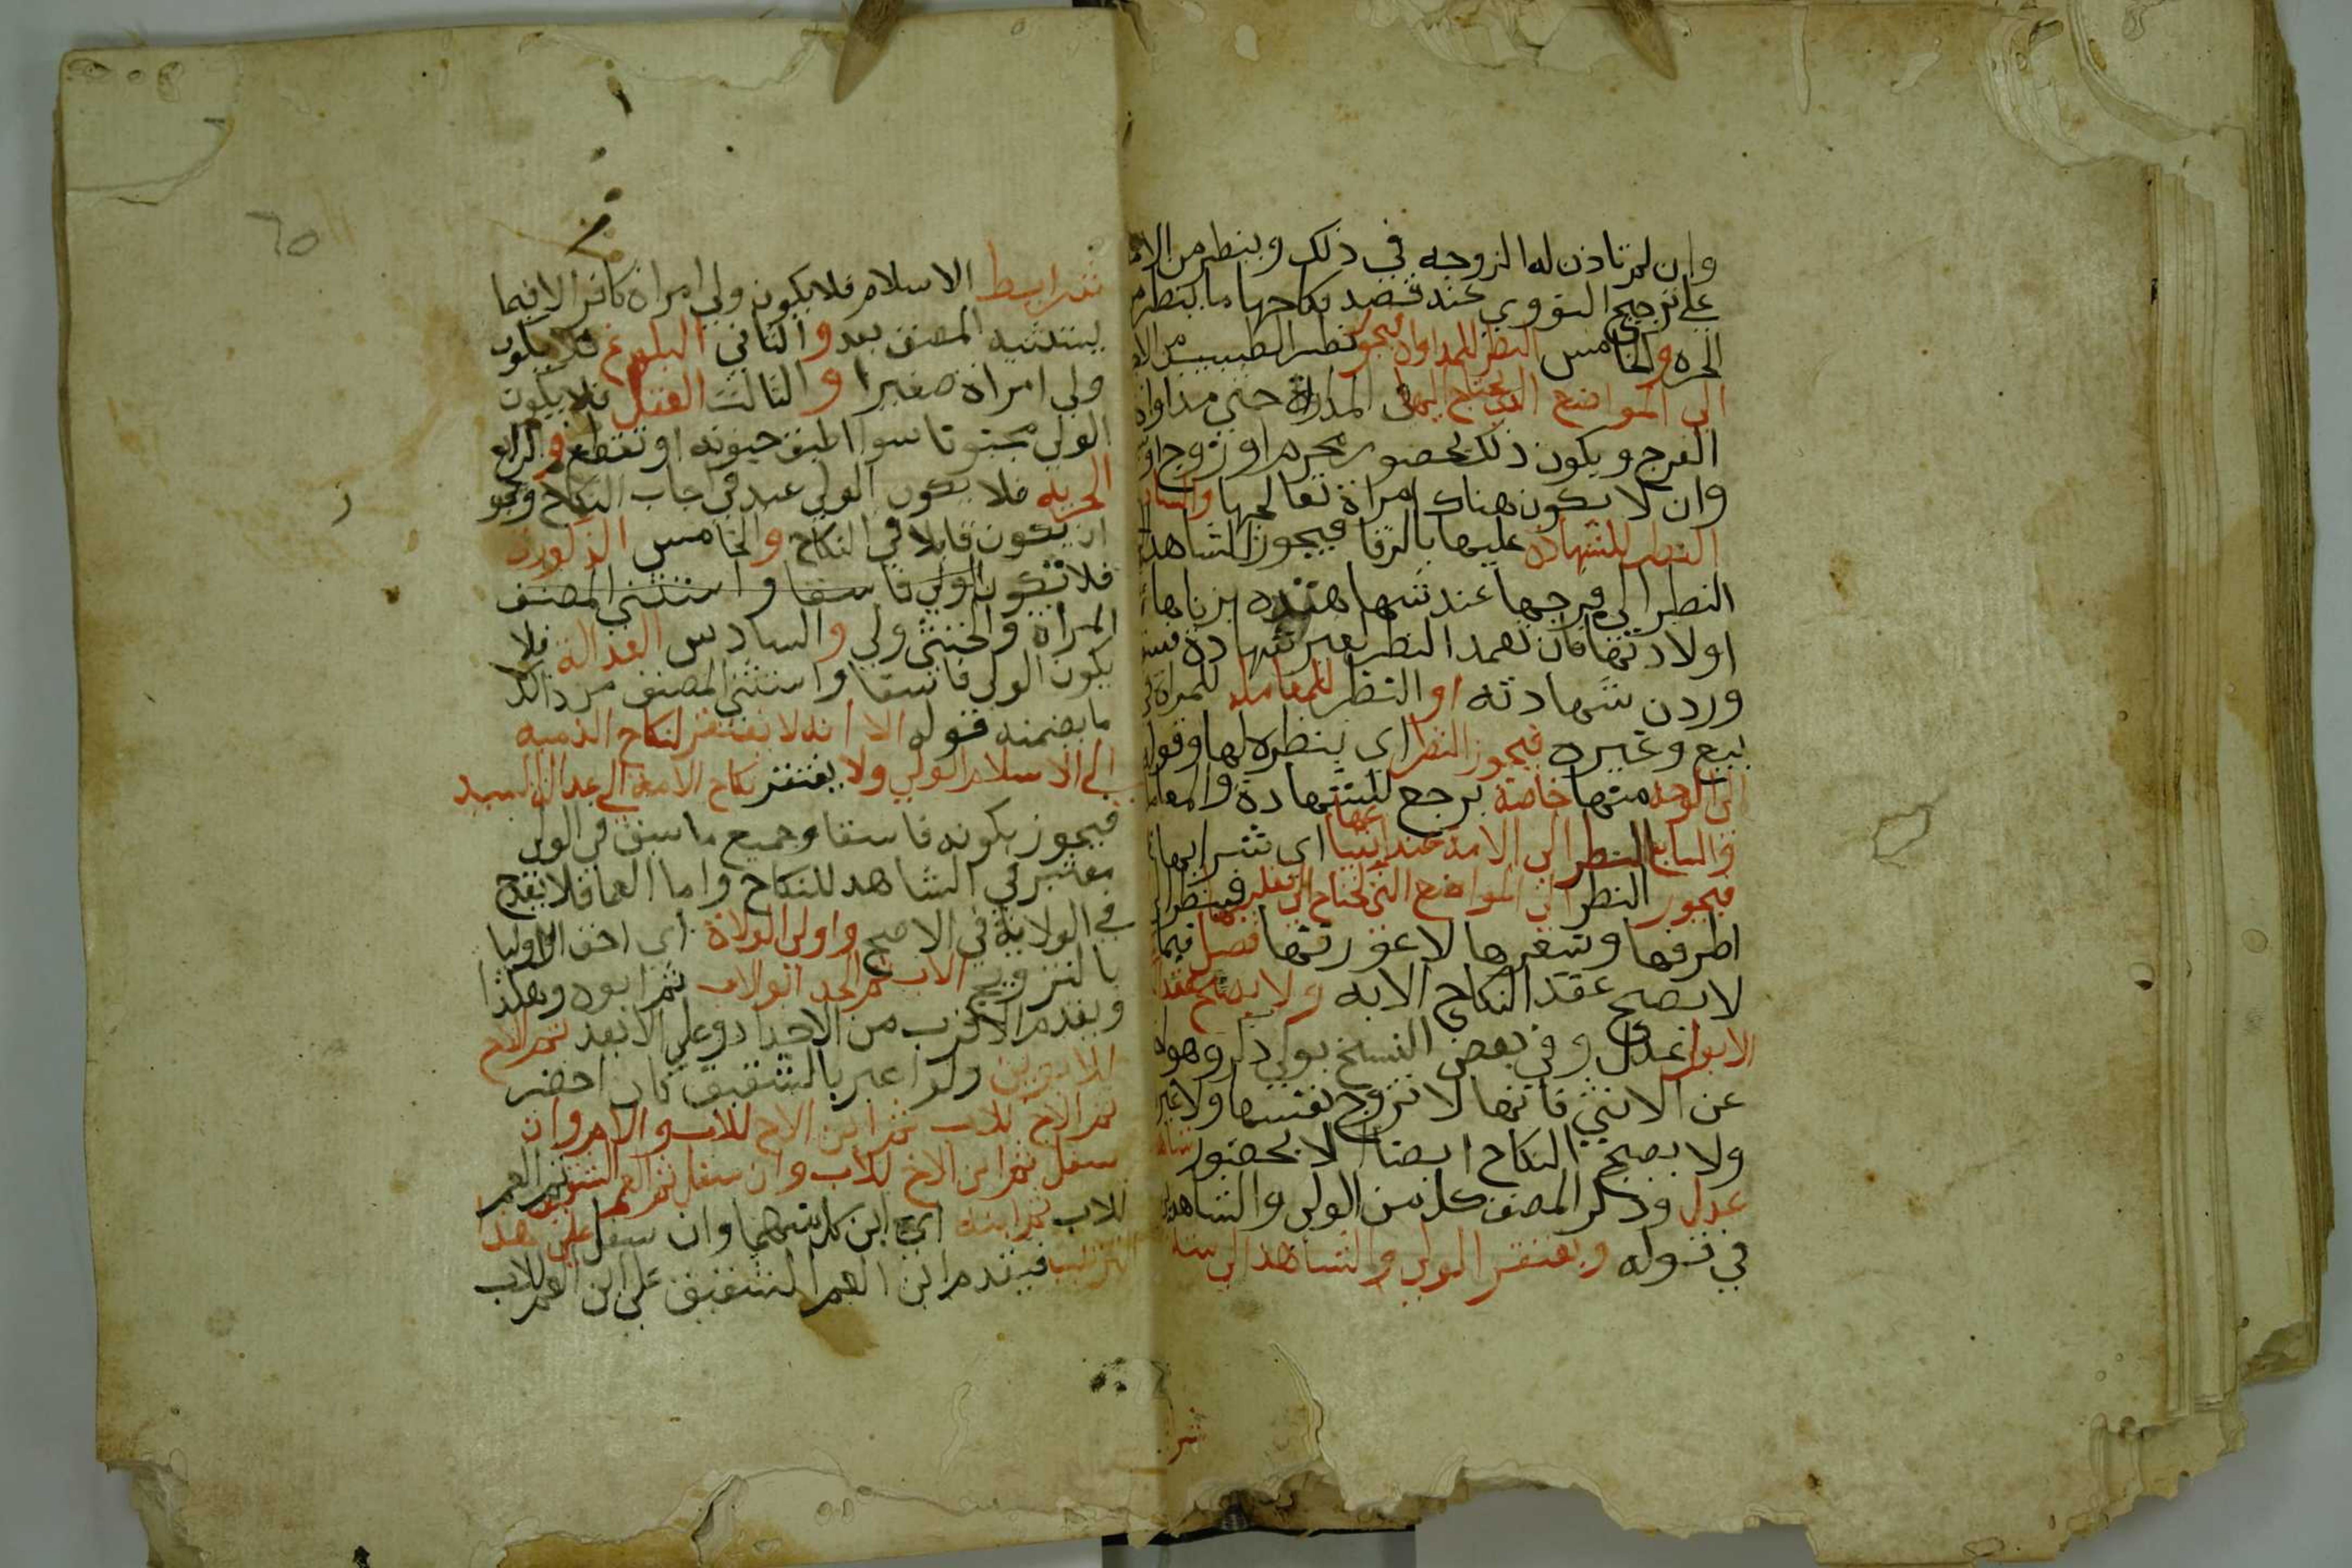 وان لم تاذن له الزوجه في ذلك وينظر من الامة
علي ترجيح النووي عند قصد نكاحها ما ينظره من
الحره والخامس النظر للمداواه فيجوز نظر الطبيب من الا
الي المواضع التي يحتاج اليها في المداواة حتي مداواة
الفرج ويكون ذلك بحضور محرم او زوج او
وان لا يكون هناك امراة تعالجها والسادس
النظر للشهادة عليها بالزنا فيجوز الشاهد
النظر الي فرجها عند شهادته بزناها
اولادتها فان تعمد النظر لغير شهادة فسق
وردن شهادته او النظر للمعامله للمراة في
بيع وغيره فيجوز النظر اي ينظره لها وقوله
الي الوجه منها خاصة يرجع للشهادة والمعاملة
والسابع النظر الي الامة عند ابتياعها اي شرايها
فيجوز النظر الي المواضع التي يحتاج الي تقليبها فينظر الي
اطرفها وشعرها لا عورتها فصل فيما
لا يصح عقد النكاح الا به ولا يصح عقد
الا بولي عدل وفي بعض النسخ بولي ذكر وهو
عن الانثي فانها لا تزوج نفسها ولا غير
ولا يصح النكاح ايضا الا بحضور شاهد
عدل وذكر المصنف كل من الولي والشاهدين
في قوله ويفتقر الولي والشاهد الي ستة
شر
شرايط الاسلام فلا يكون ولي امراة كافر الا فيما
يستثنيه المصنف بعد والثاني البلوغ فلا يكون
ولي امراة صغيرا والثالث العقل فلا يكون
الولي مجنونا سوا اطبق جنونه او تقطع والرابع
الحريه فلا يكون الولي عبد في ايجاب النكاح ويجوز
ان يكون قابلا في النكاح والخامس الذكورة
فلا تكون الولي فاسقا واستثني المصنف
المراة والخنثي ولي والسادس العدالة فلا
يكون الولي فاسقا واستثني المصنف من ذالك
ما يضمنه قوله الا انه لا يفتقر لنكاح الذميه
الي الاسلام الولي ولا يفتقر نكاح الامة الي عدالة السيد
فيجوز بكونه فاسقا وجميع ما سبق في الولي
معتبر في الشاهد للنكاح واما العما فلا يقدح
في الولاية في الاصح واولي الولاة اي احق الاوليا
بالتزويج الاب ثم الجد ابو الاب ثم ابوه وهكذا
ويقدم الاقرب من الاجداد وعلي الابعد ثم الاخ
للابوين ولو اعبر بالشقيق كان احضر
ثم الاخ للاب ثم ابن الاخ للاب والام وان
سفل ثم ابن الاخ للاب وان سفل ثم العم الشقيق ثم العم
للاب ثم ابنه اي ابن كل منهما وان سفل علي هذا
الترتيب فيقدم ابن العم الشقيق علي ابن العم للاب